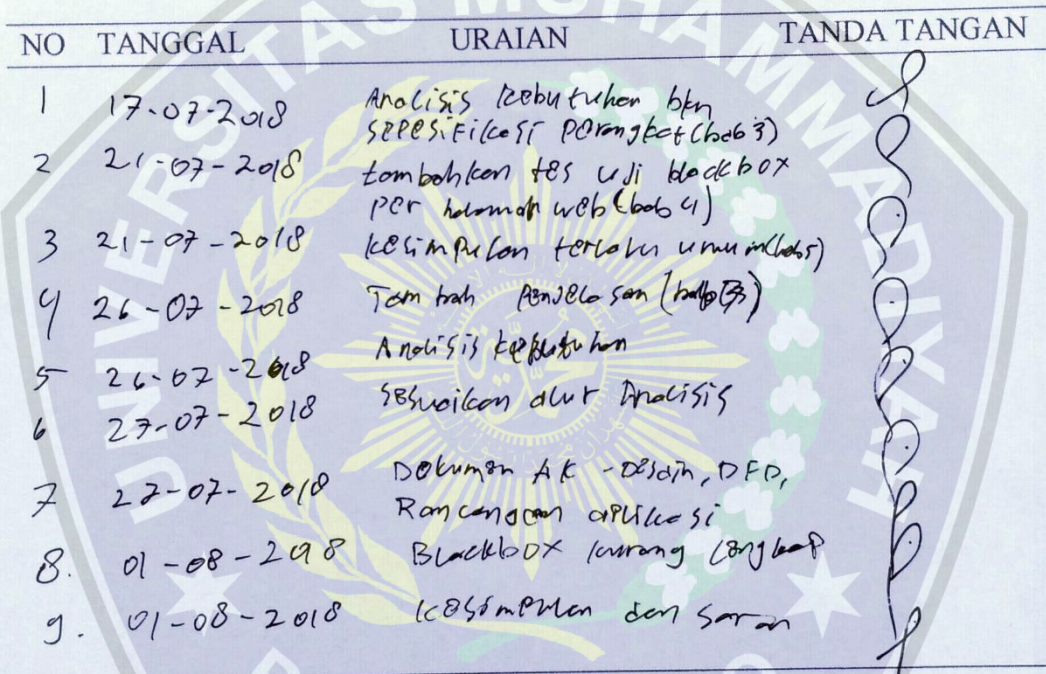 NO TANGGAL URAIAN TANDA TANGAN
1 17-07-2018 Analisis kebutuhan bkn
spesifikasi perangkat (bab 3)
2 21-07-2018 tambahkan tes uji blackbox
per halaman web (bab 4)
3 21-07-2018 kesimpulan terlalu umum (bab 5)
4 26-07-2018 Tambah penjelasan
5 26-07-2018 Analisis kebutuhan
6 27-07-2018 sesuaikan alur Analisis
7 27-07-2018 Dokumen AK - Desain, DFD,
Rancangan aplikasi
8. 01-08-2018 Blackbox kurang lengkap
9. 01-08-2018 kesimpulan dan saran
UNIVERSITAS MUHAMMADIYAH